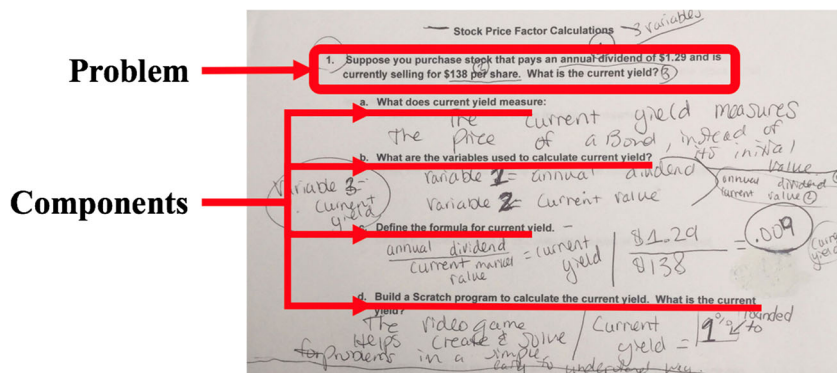 Stock Price Factor Calculations - 3 variables
Problem
1. Suppose you purchase stock that pays an annual dividend of $1.29 and is
currently selling for $138 per share. What is the current yield? 3
Components
a. What does current yield measure:
The current yield measures
the price of a Bond, instead of
its initial
value.
b. What are the variables used to calculate current yield?
variable 1 = annual dividend
variable 2 = current value
variable 3 =
current
yield
annual dividend
current value 2
c. Define the formula for current yield.
annual dividend
current market
value
= current
yield
$1.29
$138
= .009
current
yield
d. Build a Scratch program to calculate the current yield. What is the current
yield?
The video game
Helps create & solve
for problems in a simple
easy to understand way.
Current
yield = 1%
rounded
to